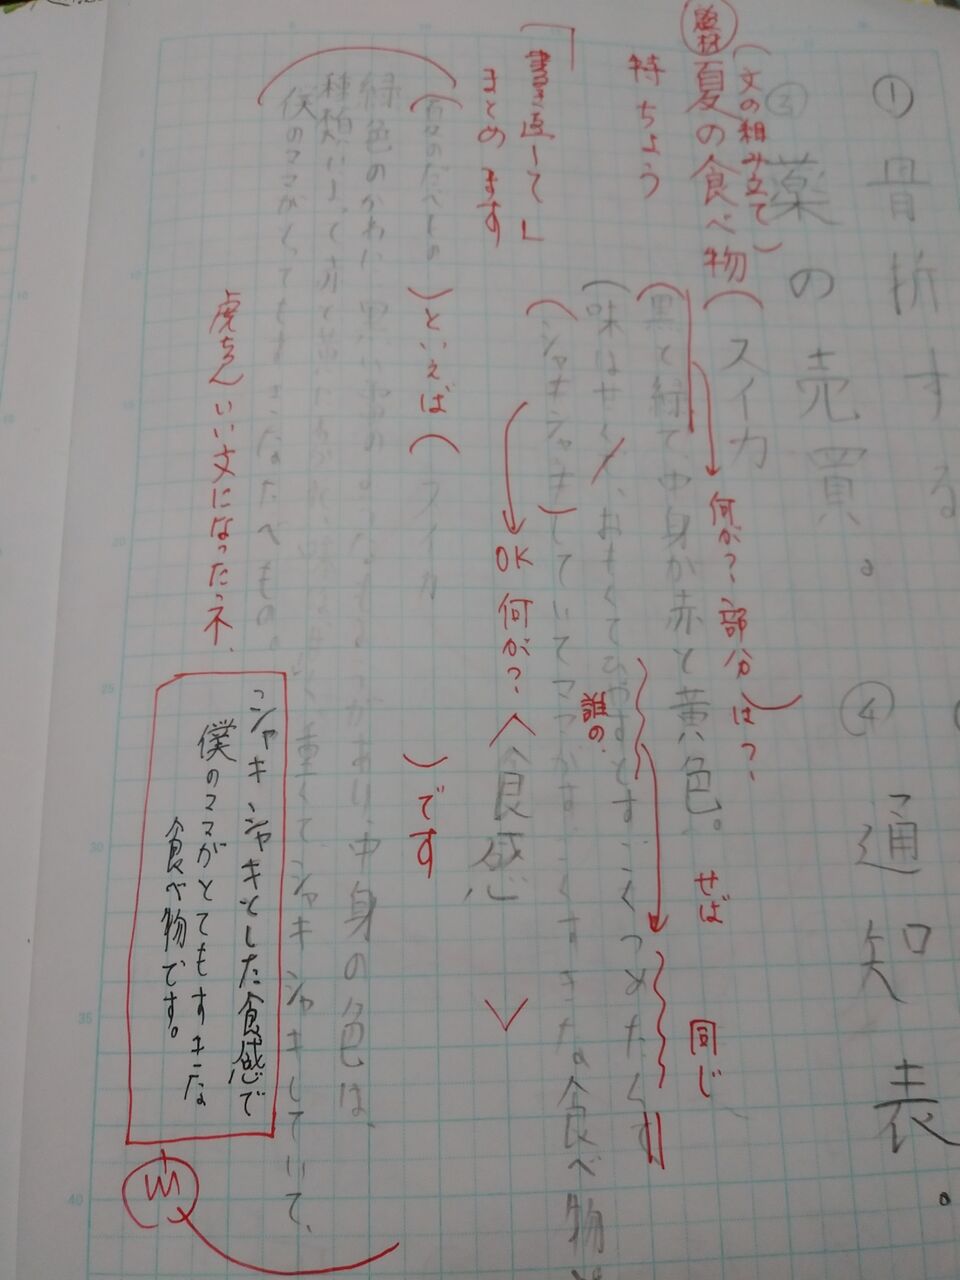 ①骨折する
③薬の売買。
④通知表。
(文の組み立て)
題材 夏の食べ物(スイカ
何が?部分は?)
特ちょう
(黒と緑で、中身が赤と黄色。
せば
同じ
(味はせ
、おもくてひやすとすごくつめたくす
誰の
(シャキシャキ)していてママがすごくすきな食べ物
「書き直して」
まとめます
OK 何が?
食感
(夏のたべもの)といえば(スイカ)です
緑色のかわに黒い
があり、中身の色は、
種類によって赤と黄
重くてシャキシャキしていて、
僕のママがとてもすきなたべもの。
虎ちゃん いい文になったネ、
シャキシャキとした食感で
僕のママがとてもすきな
食べ物です。